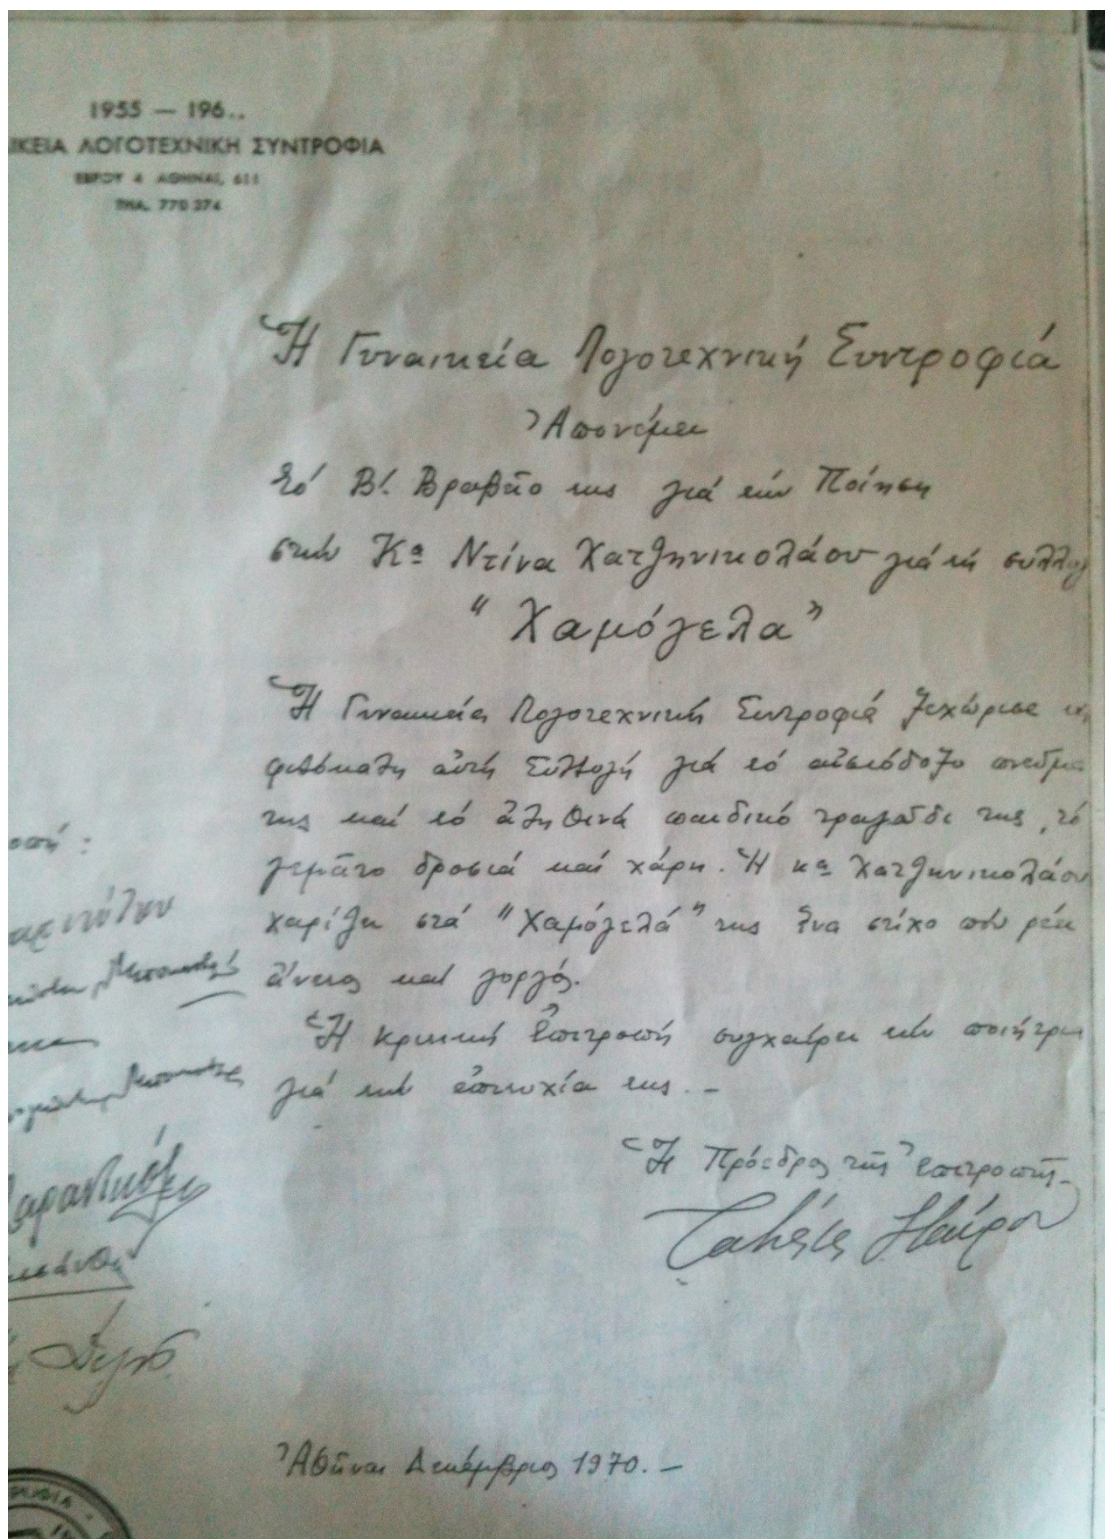 1955 — 196..
ΙΚΕΙΑ ΛΟΓΟΤΕΧΝΙΚΗ ΣΥΝΤΡΟΦΙΑ
ΕΒΡΟΥ 4 ΑΘΗΝΑΙ, 611
ΤΗΛ. 770 274
Ἡ Γυναικεία Λογοτεχνική Συντροφιά
Ἀπονέμει
τό Β΄. Βραβεῖο της γιά τήν Ποίηση
στήν Κα Ντίνα Χατζηνικολάου γιά τή συλλογ
"Χαμόγελα"
Ἡ Γυναικεία Λογοτεχνική Συντροφιά ξεχώρισε τη
φιλόκαλη αὐτή Συλλογή γιά τό αἰσιόδοξο πνεῦμα
της καί τό ἀληθινά παιδικό τραγοῦδι της, τό
γεμᾶτο δροσιά καί χάρη. Ἡ κα Χατζηνικολάου
χαρίζει στά "Χαμόγελά" της ἕνα στίχο πού ρέει
ἄνετος καί γοργός.
Ἡ Κριτική Ἐπιτροπή συγχαίρει τήν ποιήτρια
γιά τήν ἐπιτυχία της. —
Ἡ Πρόεδρος τῆς Ἐπιτροπῆς
Σταύρου
οπή :
Ἀθῆναι Δεκέμβριος 1970. —